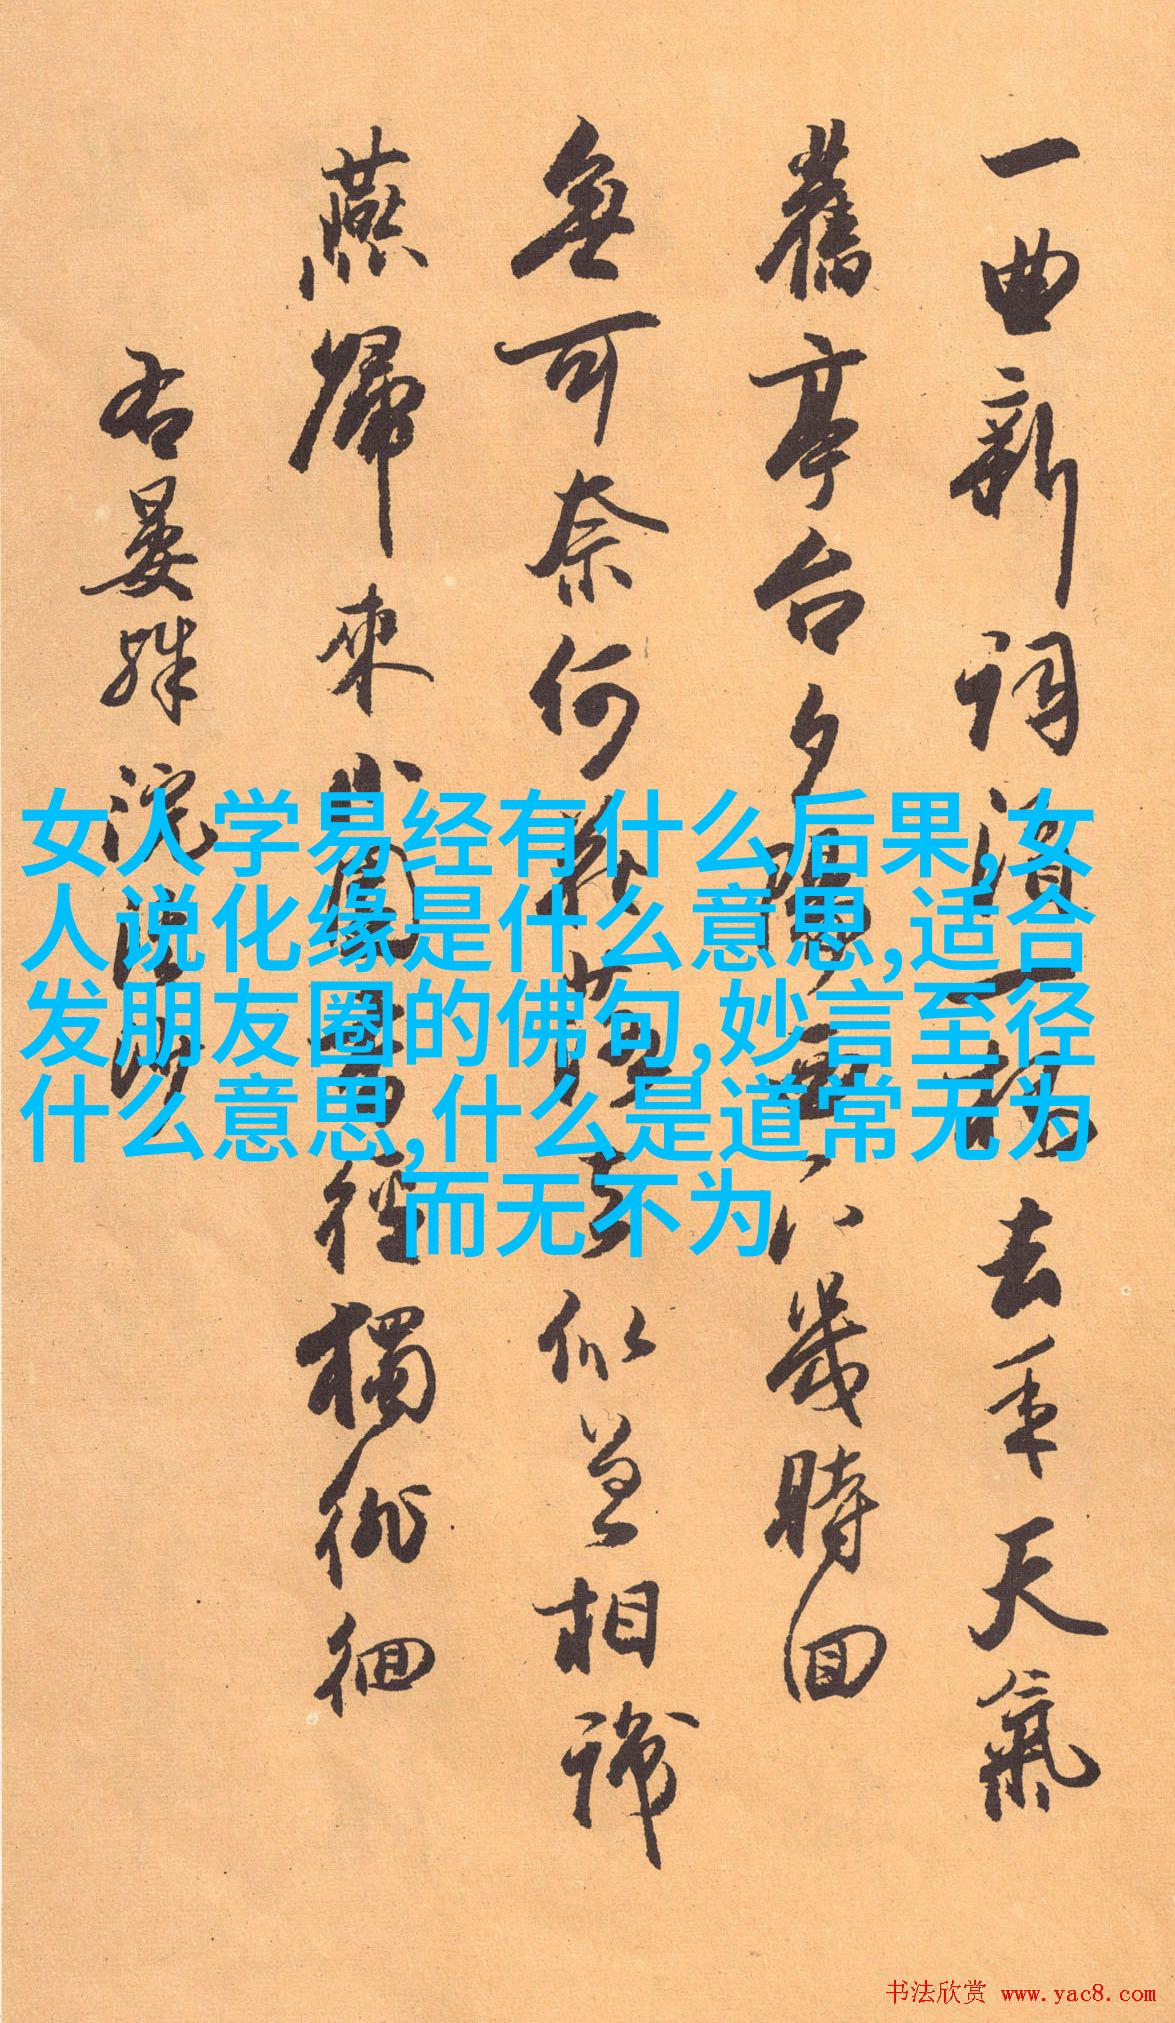 一曲新詞酒一杯去年天氣
舊亭台夕陽西下幾時回
無可奈何花落去似曾相識
燕歸來小園香徑獨徘徊
右晏殊浣溪沙
女人学易经有什么后果,女
人说化缘是什么意思,适合
发朋友圈的佛句,妙言至径
什么意思,什么是道常无为
而无不为
书法欣赏 www.yac8.com